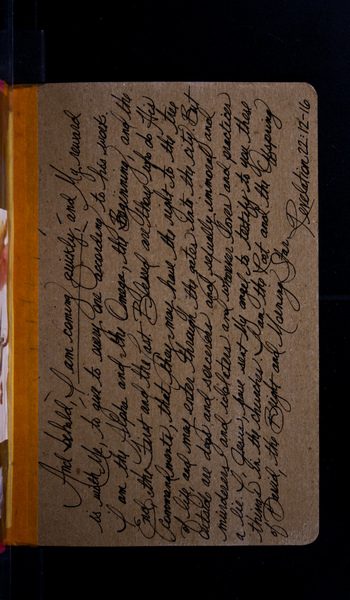 And behold, I am coming quickly, and My reward
is with Me, to give to every one according to his work.
I am the Alpha and the Omega, the Beginning and the
End, the First and the Last. Blessed are they who do His
Commandments, that they may have the right to the tree
of life, and may enter through the gates into the city. But
outside are dogs and sorcerers and sexually immoral and
murderers and idolaters, and whoever loves and practices
a lie. I, Jesus, have sent My angel to testify to you these
things in the churches. I am the Root and the Offspring
of David, the Bright and Morning Star.
Revelation 22:12-16